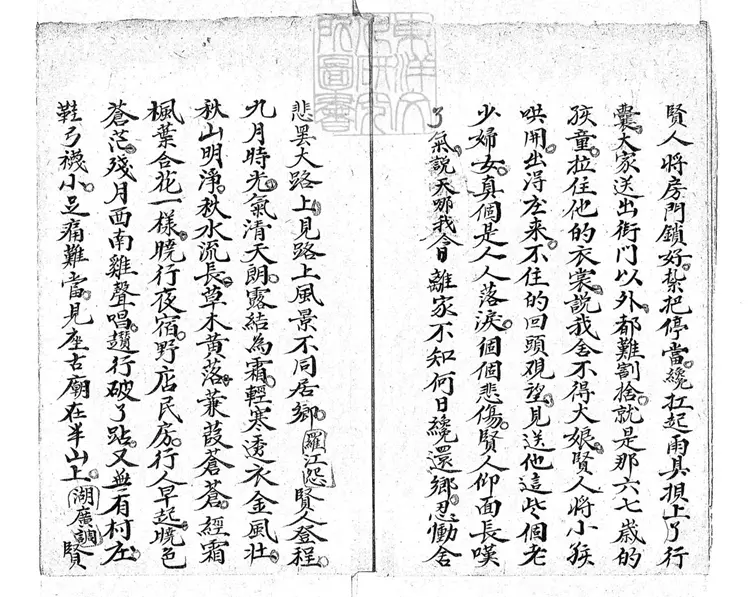 賢人將房門鎖好紮把停當纔扛起雨具損上了行
囊大家送出衙門以外都難割捨就是那六七歲的
孩童拉住他的衣裳說我舍不得大娘賢人將小孩
哄用出淂庄来不住的回頭观望見送他這些個老
少婦女真個是人人落淚個個悲傷賢人仰面長嘆
了氣說天哪我今日離家不知何日纔還鄉忍慟舍
悲罢大路上見路上風景不同居鄉羅江怨賢人登程
九月時光氣清天朗露結為霜輕寒透衣金風壮
秋山明淨秋水流長草木黄落蒹葭蒼蒼經霜
楓葉合花一樣曉行夜宿野店民房行人早起曉色
蒼茫殘月西南雞聲唱趲行破了跕又無有村庄
鞋弓襪小足痛難當見座古廟在半山上湖廣調賢
東洋文化研究所圖書